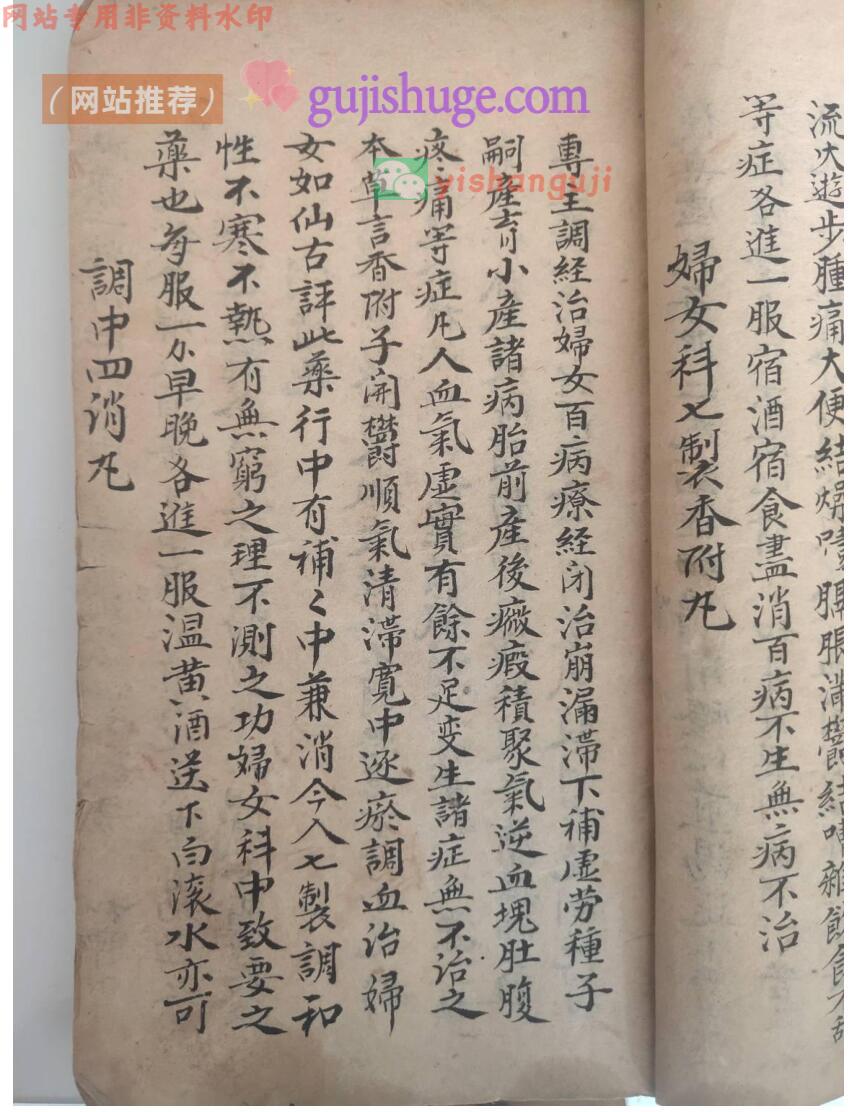 网站专用非资料水印
（网站推荐）
gujishuge.com
yishanguji
流火遊步腫痛大便結燥噎膈脹滿鬱結嘈雜飲食不
等症各進一服宿酒宿食盡消百病不生無病不治
婦女科七製香附丸
專主調経治婦女百病療経闭治崩漏滞下補虛劳種子
嗣產育小產諸病胎前產後癥瘕積聚氣逆血塊肚腹
疼痛等症凡人血氣虛實有餘不足变生諸症無不治之
本草言香附子開鬱順氣清滞寛中逐瘀調血治婦
女如仙古評此藥行中有補〻中兼消今入七製調和
性不寒不熱有無窮之理不測之功婦女科中致要之
藥也每服一 早晚各進一服温黄酒送下白滾水亦可
調中四消丸